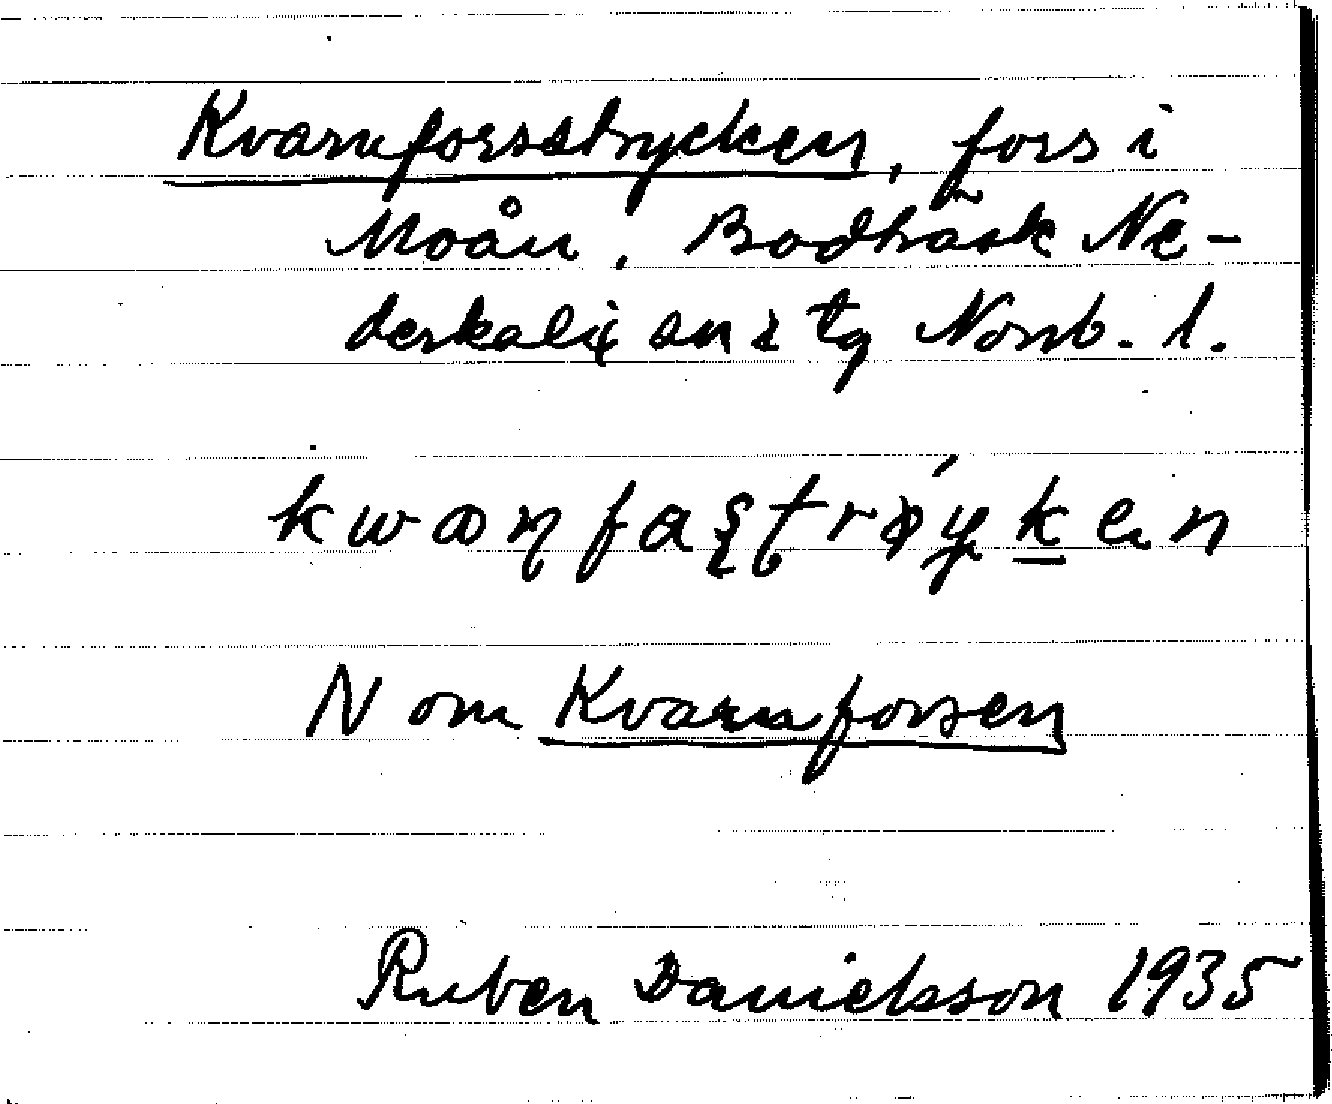 Kvarnforsstrycken, fors i
Moån, Bodträsk Ne-
derkalix sn o tg Norrb. l.
N om Kvarnforsen
Ruben Danielsson 1935